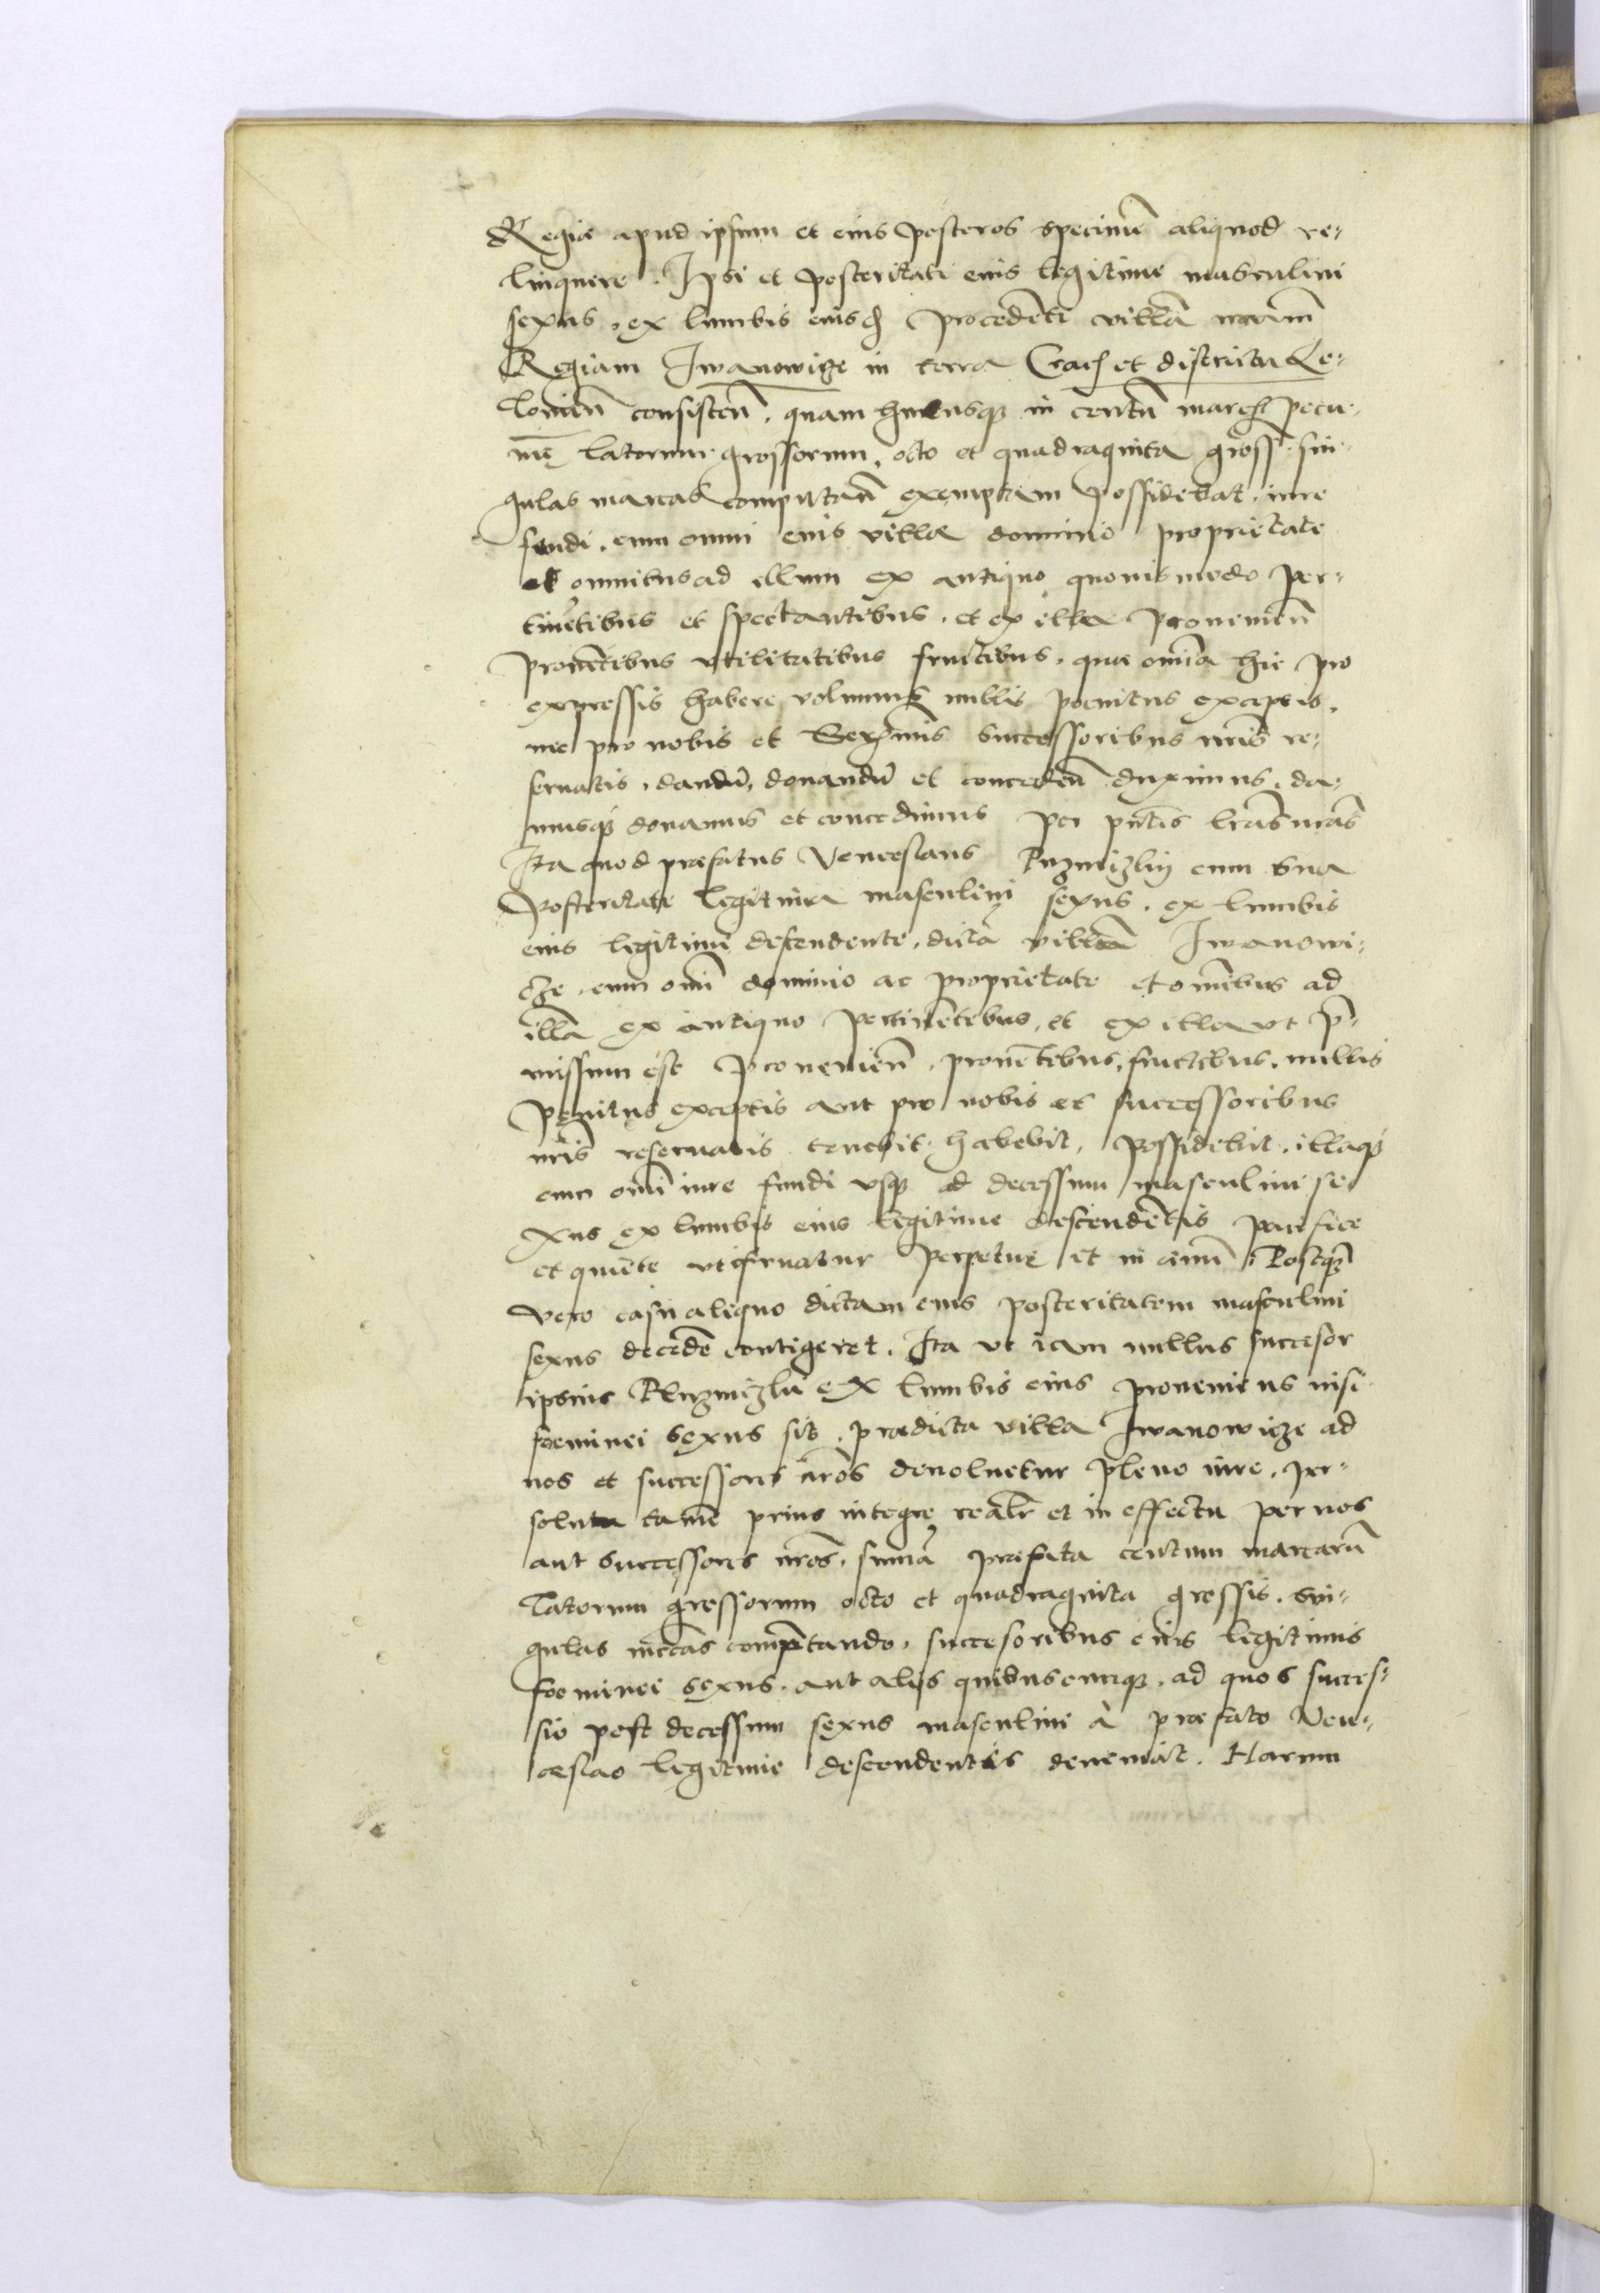 Regiæ apud ipsum et eius posteros specimē aliquod re-
linquere. Ipsi et posteritati eius legitime masculini
sexus, ex lumbis eiusd procedēti villā nrām
Regiam Iwanowicze in terra Crach et districtu Le-
lovien̄ consisten̄. quam hucusq3 in centū march pecu-
niȩ latorum grossorum, octo et quadraginta gross. sin-
gulas marcas computan̄ exemptam possidebat. iure
feudi. cum omni eius villæ dominio proprietate
et omnibus ad illum ex antiquo quovismodo per-
tinētibus et spectantibus. et ex illa provenien̄
provētibus utilitatibus fructibus. quæ omīa hic pro
expressis habere volumus nullis poenitus exceptis.
nec pro nobis et Serᵐⁱˢ successoribus nrīs re-
servatis. dandū, donandū et conceden̄ duximus. da-
musq3 donamus et concedimus per pn̄tes lrās nrās
Ita quod præfatus Venceslaus Ruzmizlij cum sua
posteritate legitima masculini sexus. ex lumbis
eius legitime descendente. dictā villā Iwanowi-
cze. cum omī dominio ac proprietate et omībus ad
illā ex antiquo pertinētibus, et ex illa ut p̄-
missum est provenien̄. provētibus, fructibus. nullis
pȩnitus exceptis aut pro nobis et successoribus
nrīs reservatis tenebit. habebit. possidebit. illaq3
cum omī iure feudi usq3 ad decessum masculini se
xus ex lumbis eius legitime descendētis pacifice
et quiete utifruatur perpetuȩ et in ævū. Postq3
vero casu aliquo dictam eius posteritatem masculini
sexus decedē contigeret. Ita ut iam nullus succesor
ipsius Ruzmizlii ex lumbis eius proveniens nisi
foeminei sexus sit. prædicta villa Iwanowicze ad
nos et successores nrōs devolvetur pleno iure. per-
soluta tamē prius integre realr̄ et in effectu per nos
aut successores nrōs. sum̄a præfata centum marcarū
latorum grossorum octo et quadraginta grossis. sin-
gulas mrcas computando. succesoribus eius legitimis
foeminei sexus. aut alijs quibuscunq3. ad quos succes-
sio post decessum sexus masculini à præfato Ven-
ceslao legitime descendentis deveniat. Harum